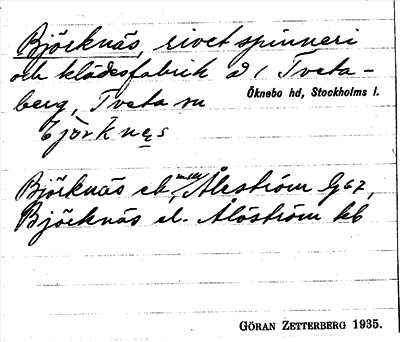 Björknäs, rivet spinneri
och klädesfabrik å 1 Tveta-
berg, Tveta sn
Öknebo hd, Stockholms l.
björknes
Björknäs ek, Åleström Gaz,
Björknäs el. Ålöström kb
GÖRAN ZETTERBERG 1935.